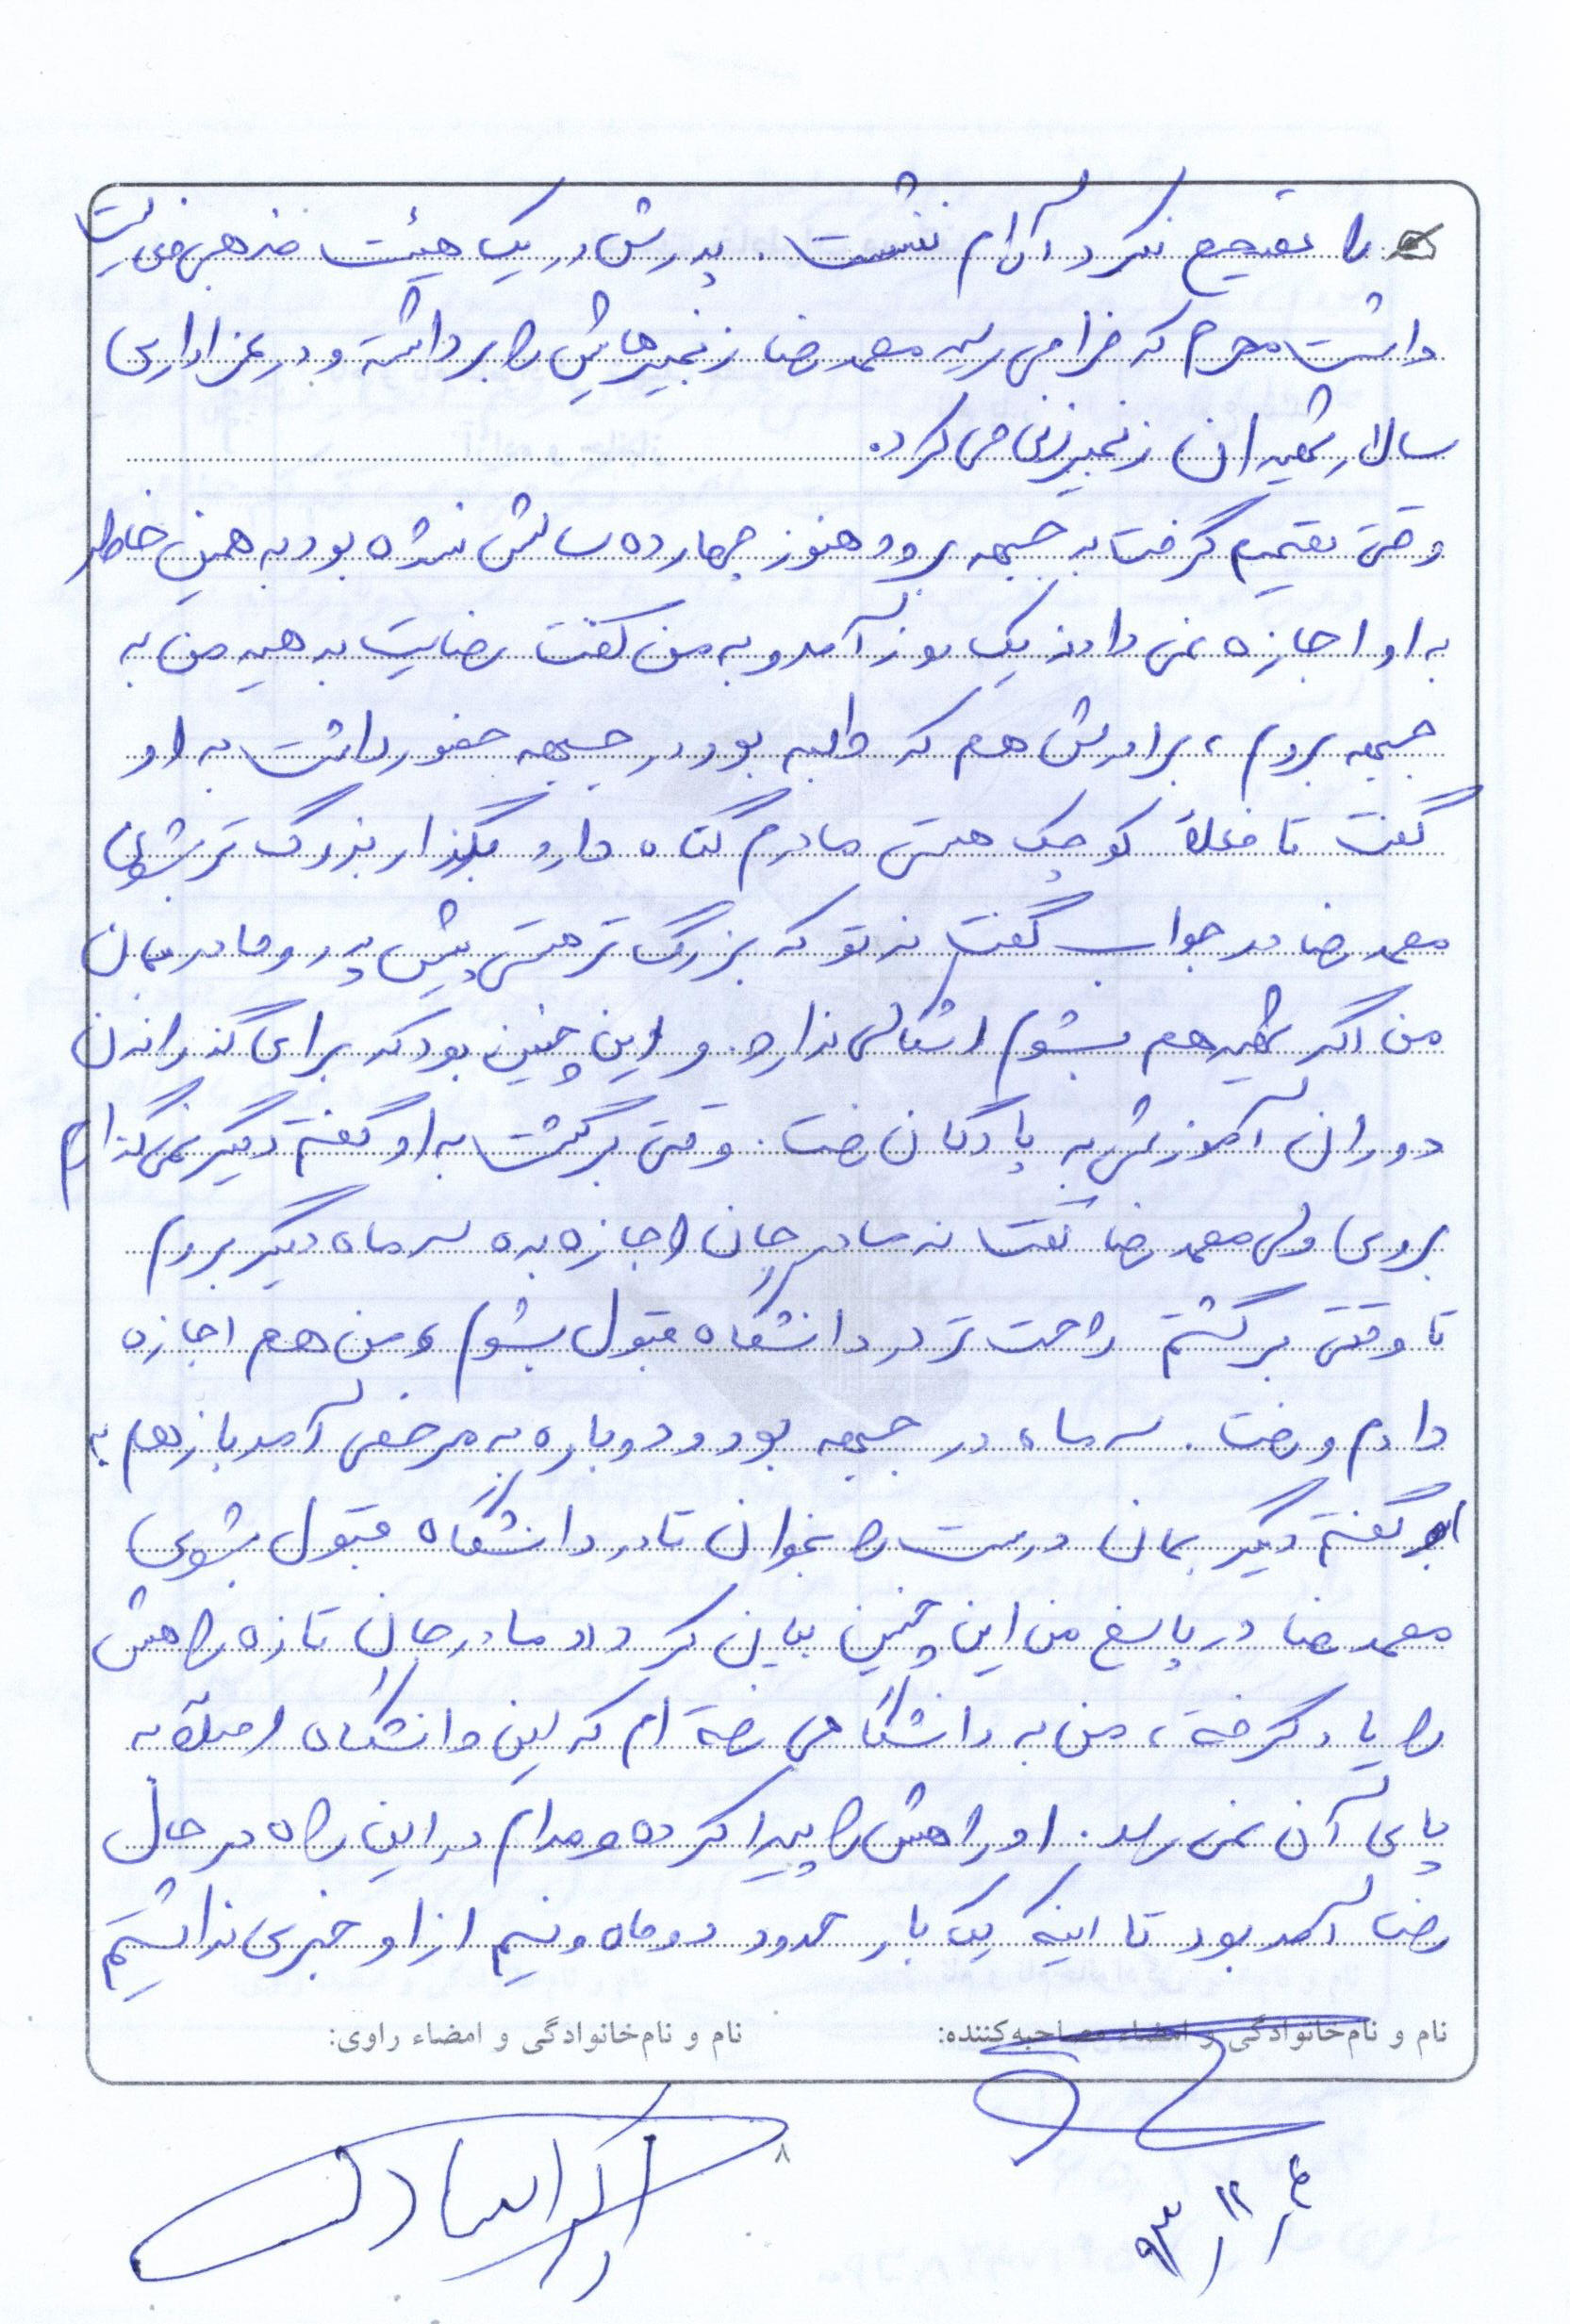 را تصحیح نکرد آرام ننشست. پدرش در یک هیئت مذهبی فعالیت
داشت محرم که فرا می رسید محمدرضا زنجیرهایش را برداشته و در عزاداری
سالار شهیدان زنجیرزنی می کرد.
وقتی تصمیم گرفت به جبهه برود هنوز چهارده سالش نشده بود به همین خاطر
به او اجازه نمی دادند یک روز آمد و به من گفت رضایت بدهید من به
جبهه بروم، برادرش هم که طلبه بود در جبهه حضور داشت به او
گفت تا فعلاً کوچک هستی مادرم گناه دارد بگذار بزرگ تر بشوی
محمدرضا در جواب گفت نه تو که بزرگ تر هستی پیش پدر و مادر بمان
من اگر شهید هم بشوم اشکالی ندارد. و این چنین بود که برای گذراندن
دوران آموزشی به پادگان رفت. وقتی برگشت به او گفتم دیگر نمی گذارم
بروی ولی محمدرضا گفت نه مادر جان اجازه بده سه ماه دیگر بروم
تا وقتی برگشتم راحت تر در دانشگاه قبول بشوم و من هم اجازه
دادم و رفت. سه ماه در جبهه بود و دوباره به مرخصی آمد باز هم به
او گفتم دیگر بمان درست را بخوان تا در دانشگاه قبول بشوی
محمدرضا در پاسخ من این چنین بیان کرد مادر جان تازه راهش
را یاد گرفته، من به دانشگاهی رفته ام که این دانشگاه اصلاً به
پای آن نمی رسد. او راهش را پیدا کرده و مدام در این راه در حال
رفت آمد بود تا اینکه یک بار حدود دو ماه و نیم از او خبری نداشتیم
نام و نام‌خانوادگی و امضاء مصاحبه‌کننده:
نام و نام‌خانوادگی و امضاء راوی:
۸